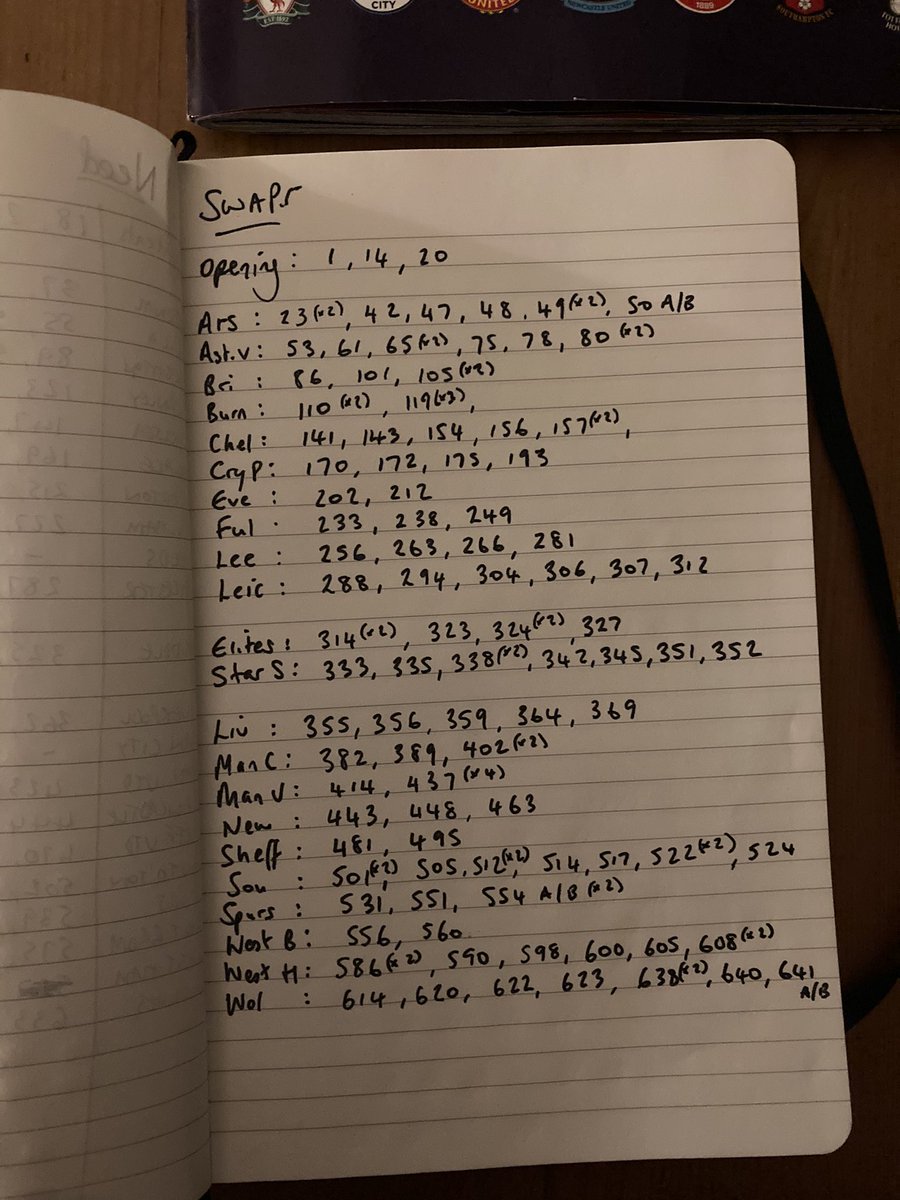 EST 1892
CITY
UNITED
NEWCASTLE UNITED
1889
SOUTHAMPTON FC
Need
SWAPS
Opening: 1, 14, 20
Ars : 23(x2), 42, 47, 48, 49(x2), 50 A/B
Ast.V: 53, 61, 65(x2), 75, 78, 80(x2)
Bri : 86, 101, 105(x2)
Burn: 110(x2), 119(x3),
Chel: 141, 143, 154, 156, 157(x2),
CryP: 170, 172, 175, 193
Eve : 202, 212
Ful : 233, 238, 249
Lee : 256, 263, 266, 281
Leic: 288, 294, 304, 306, 307, 312
Elites: 314(x2), 323, 324(x2), 327
Star S: 333, 335, 338(x2), 342, 345, 351, 352
Liv : 355, 356, 359, 364, 369
Man C: 382, 389, 402(x2)
Man U: 414, 437(x4)
New : 443, 448, 463
Sheff: 481, 495
Sou : 501(x2), 505, 512(x2), 514, 517, 522(x2), 524
Spurs : 531, 551, 554 A/B(x2)
West B: 556, 560
West H: 586(x2), 590, 598, 600, 605, 608(x2)
Wol : 614, 620, 622, 623, 638(x2), 640, 641 A/B